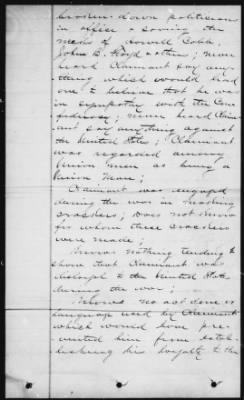 broken-down politician
in office & serving the
needs of Howell Cobb,
John B. Floyd & others; never
heard Claimant say any-
thing which would lead
one to believe that he was
in sympathy with the Con-
federacy; never heard Claim-
ant say anything against
the United States; Claimant
was regarded among
Union men as being a
Union Man;
Claimant was engaged
during the war in making
crackers; does not know
for whom these crackers
were made;
Knows nothing tending to
show that Claimant was
disloyal to the United States
during the war;
Knows no act done or
language used by Claimant
which would have pre-
vented him from estab-
lishing his loyalty to the